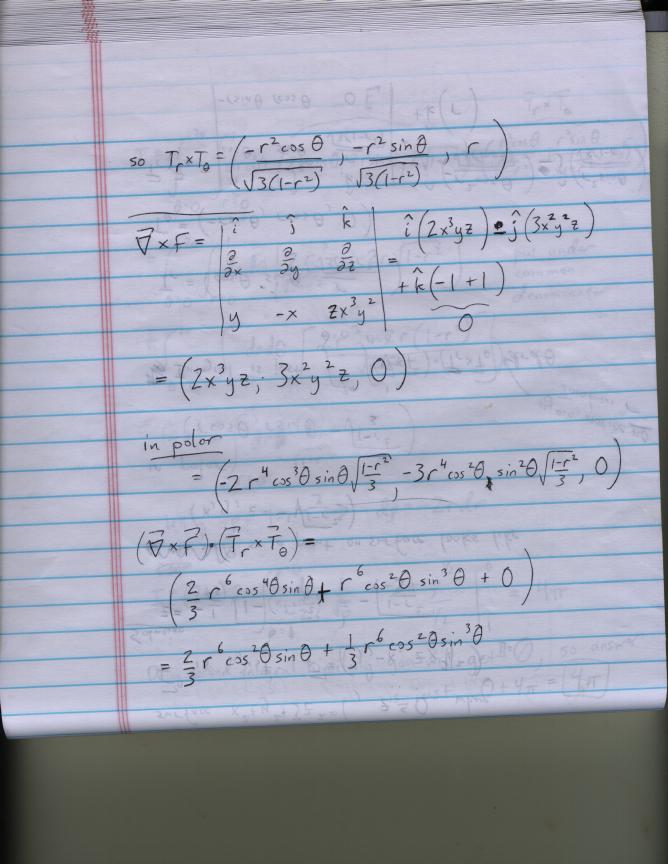 so T_r × T_θ = ( -r² cos θ / √3(1-r²) , -r² sin θ / √3(1-r²) , r )
∇⃗ × F = | î ĵ k̂ | = î (2x³yz) - ĵ (3x²y²z)
| ∂/∂x ∂/∂y ∂/∂z | + k̂ (-1 + 1)
| y -x zx³y² | 0
= (2x³yz, 3x²y²z, 0)
in polar
= (-2 r⁴ cos³θ sinθ √(1-r²)/3 , -3r⁴ cos²θ sin²θ √(1-r²)/3 , 0)
(∇⃗ × F⃗) · (T⃗_r × T⃗_θ) =
( 2/3 r⁶ cos⁴θ sinθ + r⁶ cos²θ sin³θ + 0 )
= 2/3 r⁶ cos²θ sinθ + 1/3 r⁶ cos²θ sin³θ